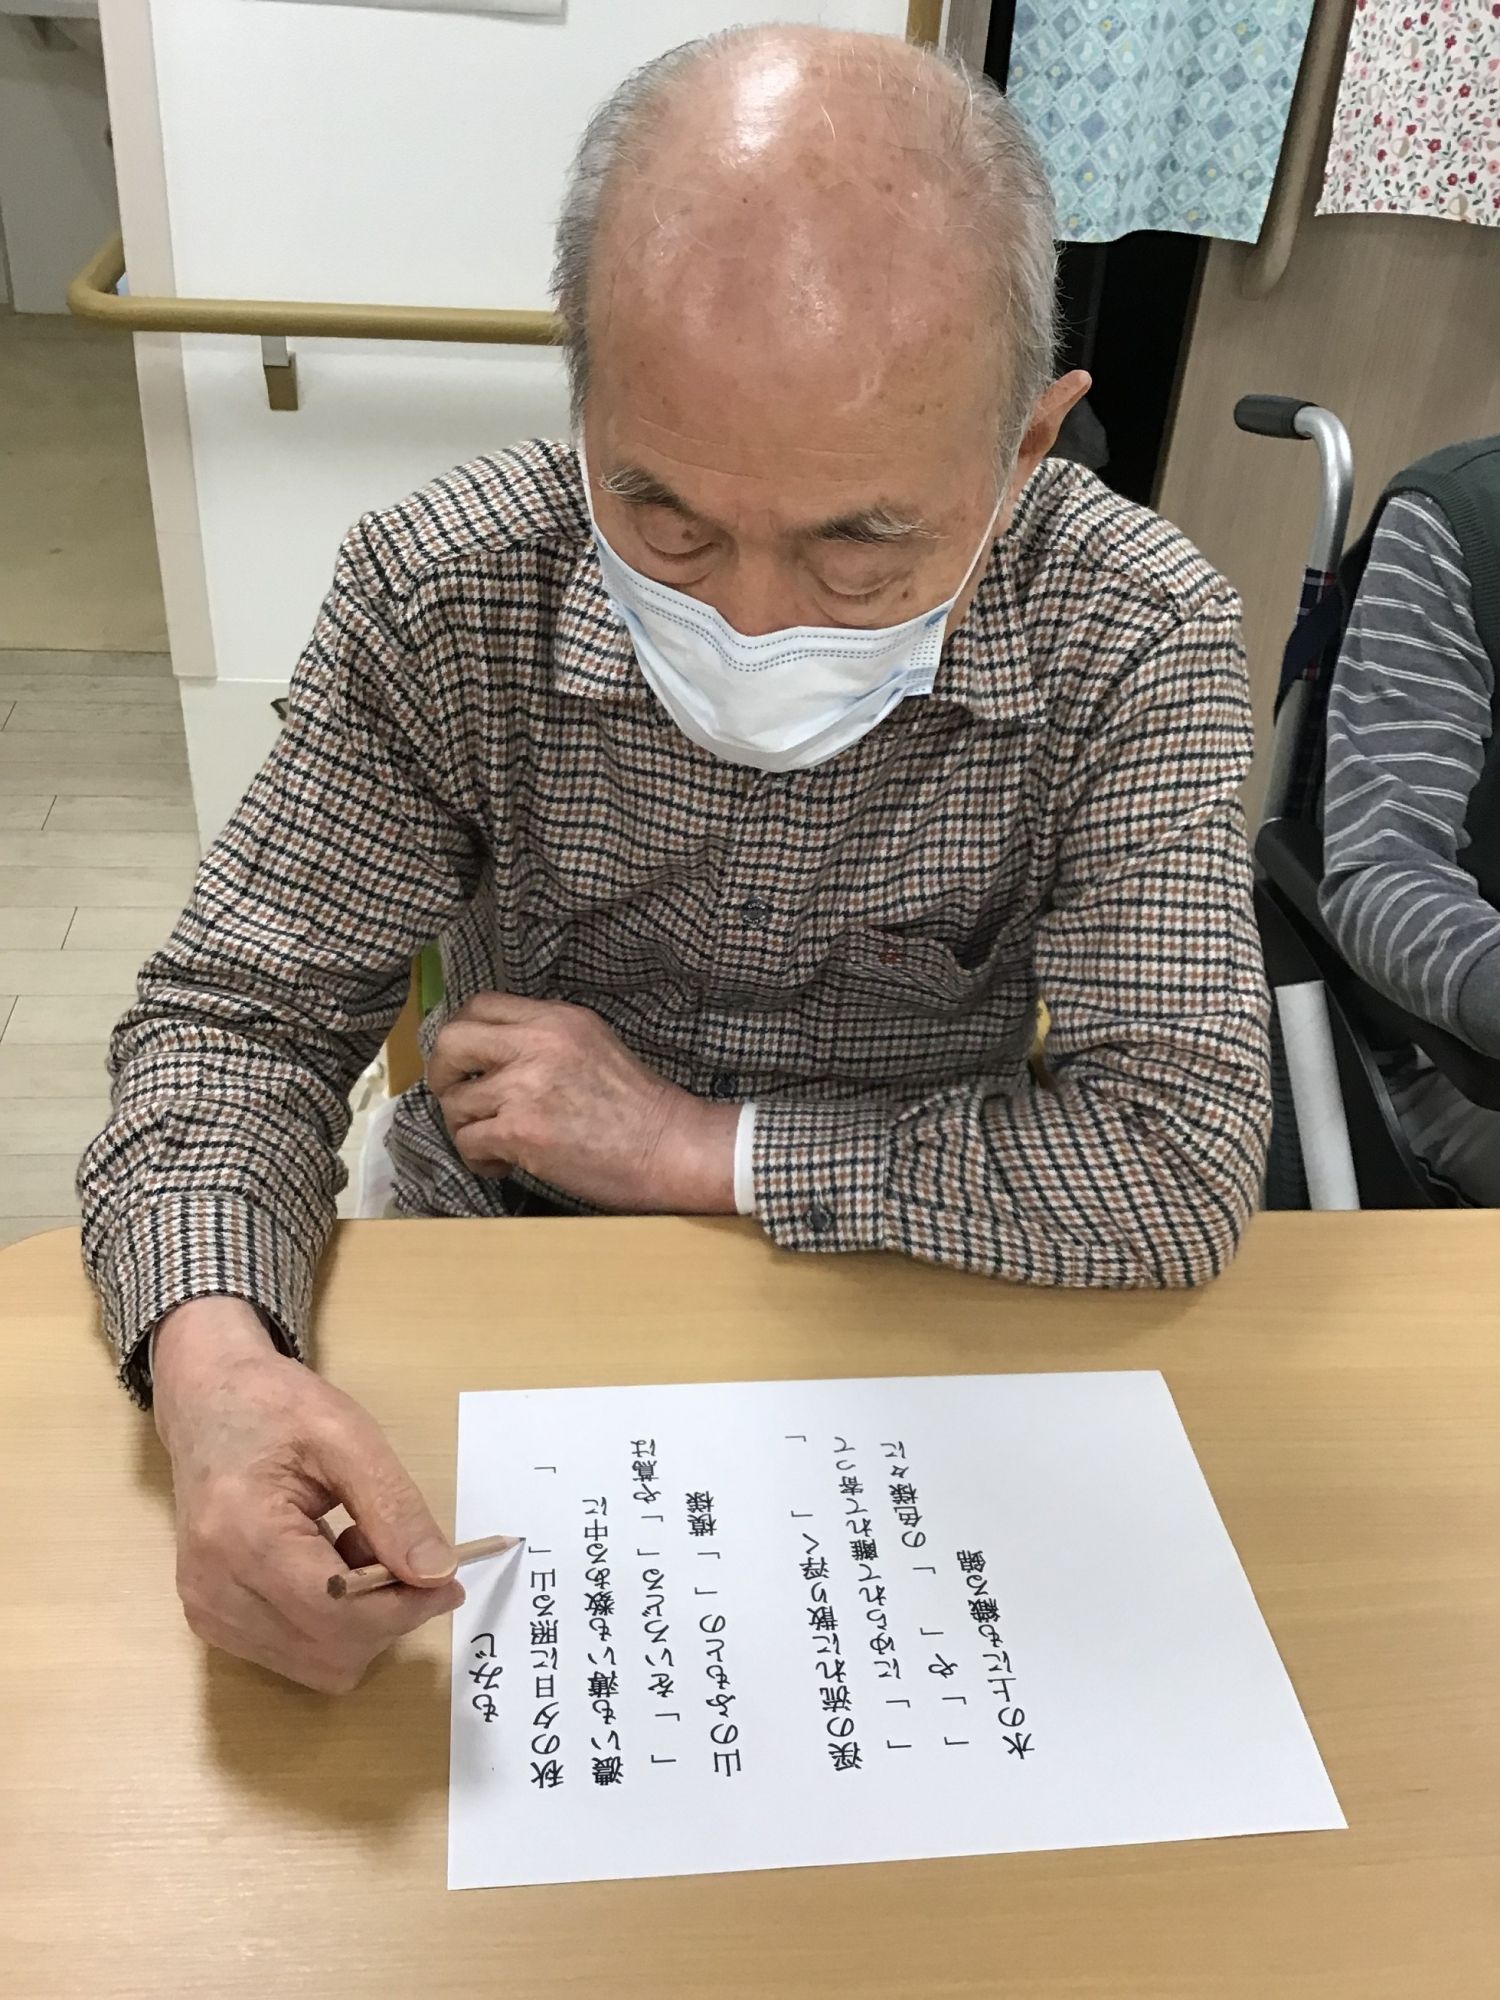 もみじ
秋の夕日に照る山「　　」
濃いも薄いも数ある中に
「　　」をいろどる「　　」や蔦は
山のふもとの「　　」模様
溪の流れに散り浮く「　　」
「　　」にゆられて離れて寄って
「　　」や「　　」の色様々に
水の上にも織る錦